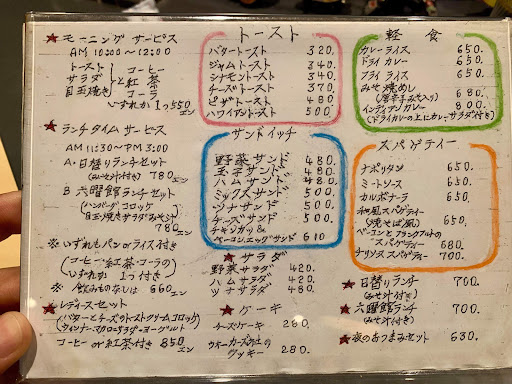 ★モーニング サービス
AM 10:00〜12:00
トースト
サラダ
目玉焼き
と
コーヒー
紅茶
コーラ
いずれか 1つ 550エン
★ランチタイム サービス
AM 11:30〜PM 3:00
A・日替りランチセット
(みそ汁付き) 780エン
B 六曜館ランチセット
(ハンバーグ コロッケ
目玉焼き サラダ みそ汁)
780エン
※いずれもパン or ライス付き
(コーヒー・紅茶・コーラの
いずれか 1つ付き)
※飲みものなしは 660エン
★レディースセット
(バターとチーズのトースト クリームコロッケ
ウィンナー マカロニサラダ・ヨーグルト)
コーヒー or 紅茶付き 850エン
トースト
バタートースト 320.
ジャムトースト 340.
シナモントースト 340.
チーズトースト 370.
ピザトースト 480
ハワイアントースト 500
サンドイッチ
野菜サンド 480.
玉子サンド 480.
ハムサンド 480.
ミックスサンド 500.
ツナサンド 500.
チーズサンド 500.
ベーコンエッグサンド 610
★サラダ
野菜サラダ 420.
ハムサラダ 420.
ツナサラダ 480.
★ケーキ
チーズケーキ 280.
クッキー 280.
軽食
カレーライス 650.
ドライカレー 650.
フライライス 650.
みそ焼めし 680.
インディアンカレー 800.
(ドライカレーの上にカレー,サラダ付き)
スパゲティー
ナポリタン 650.
ミートソース 650.
カルボナーラ 650.
和風スパゲティー
(焼そば風) 650.
ベーコンとフランクフルトの
スパゲティー 680.
スパゲティー 700.
★日替りランチ 700.
(みそ汁付き)
★六曜館ランチ 700.
(みそ汁付き)
★夜のおつまみセット 630.